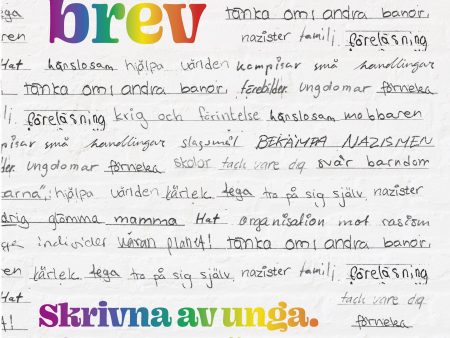 iga tänka om; andra banor,
brev
ren nazister familj föreläsning
Hat hänslosam hjälpa världen kompisar små handlingar
tänka om; andra banor, förebilder ungdomar förneka
j. föreläsning krig och förintelse hänslosam mobbaren
pisar små handlingar slagsmål BEKÄMPA NAZISMEN
der ungdomar förneka skolor tack vare dig svår barndom
arna", hjälpa världen kärlek tega tro på sig själv, nazister
drig glömma mamma Hat organisation mot rasism
individer våran planet! tänka om; andra banor,
en kärlek tega tro på sig själv, nazister familj. föreläsning
Hat tack vare dig
t! förneka
Skrivna av unga.